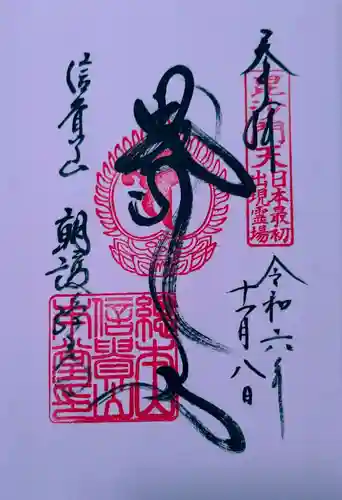 奉拝
毘沙門天
日本最初
出現霊場
令和六年
十一月八日
信貴山
朝護孫子寺
総本山
信貴山
本堂印